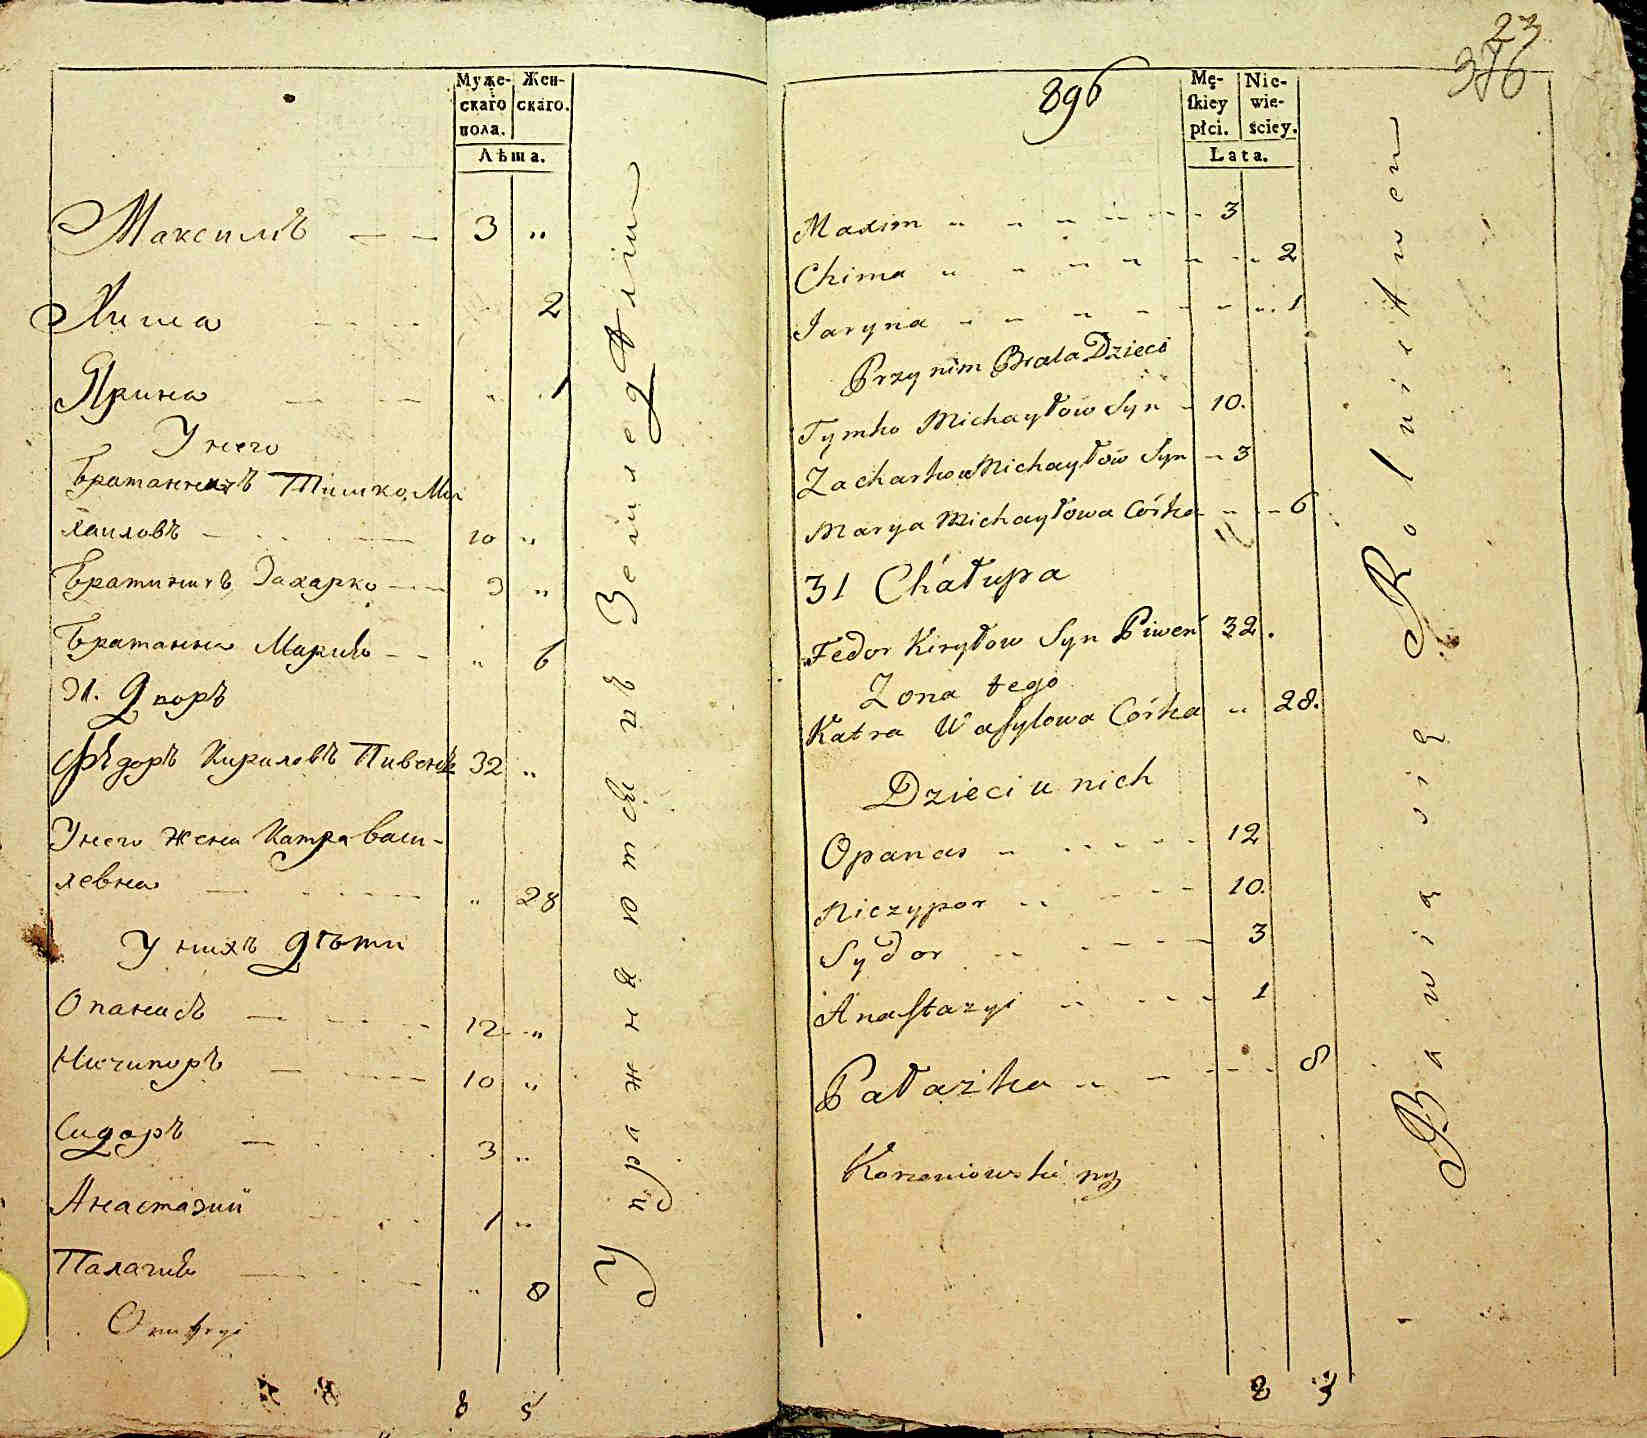 Муже- Жен-
скаго скаго.
пола.
Лѣта.
Максимъ 3 "
Хима 2
Ярина " 1
У него
Братаничъ Тимко Ми
хаиловъ 10 "
Братаничъ Захарко 3 "
Братанна Марья " 6
31. Дворъ
Фѣдоръ Кириловъ Пивень 32 "
У него жена Катра Васи-
левна " 28
У нихъ дѣти
Опанасъ 12 "
Ничипоръ 10 "
Сидоръ 3 "
Анастазий 1 "
Палагия " 8
8 5
Упражняются въ Земледѣлии
23
376
896
Mę- Nie-
skiey wie-
płci. ściey.
Lata.
Maxim 3
Chima 2
Jaryna 1
Przy nim Brata Dzieci
Tymko Michayłow Syn 10.
Zacharko Michayłow Syn 3
Marya Michayłowa Córka 6
31 Chałupa
Fedor Kiryłow Syn Piwen 32.
Zona tego
Katra Wasylowa Córka " 28.
Dzieci u nich
Opanas 12
Niczypor 10.
Sydor 3
Anastazyi 1
Pałażka 8
8
Bawią się Rolnictwem